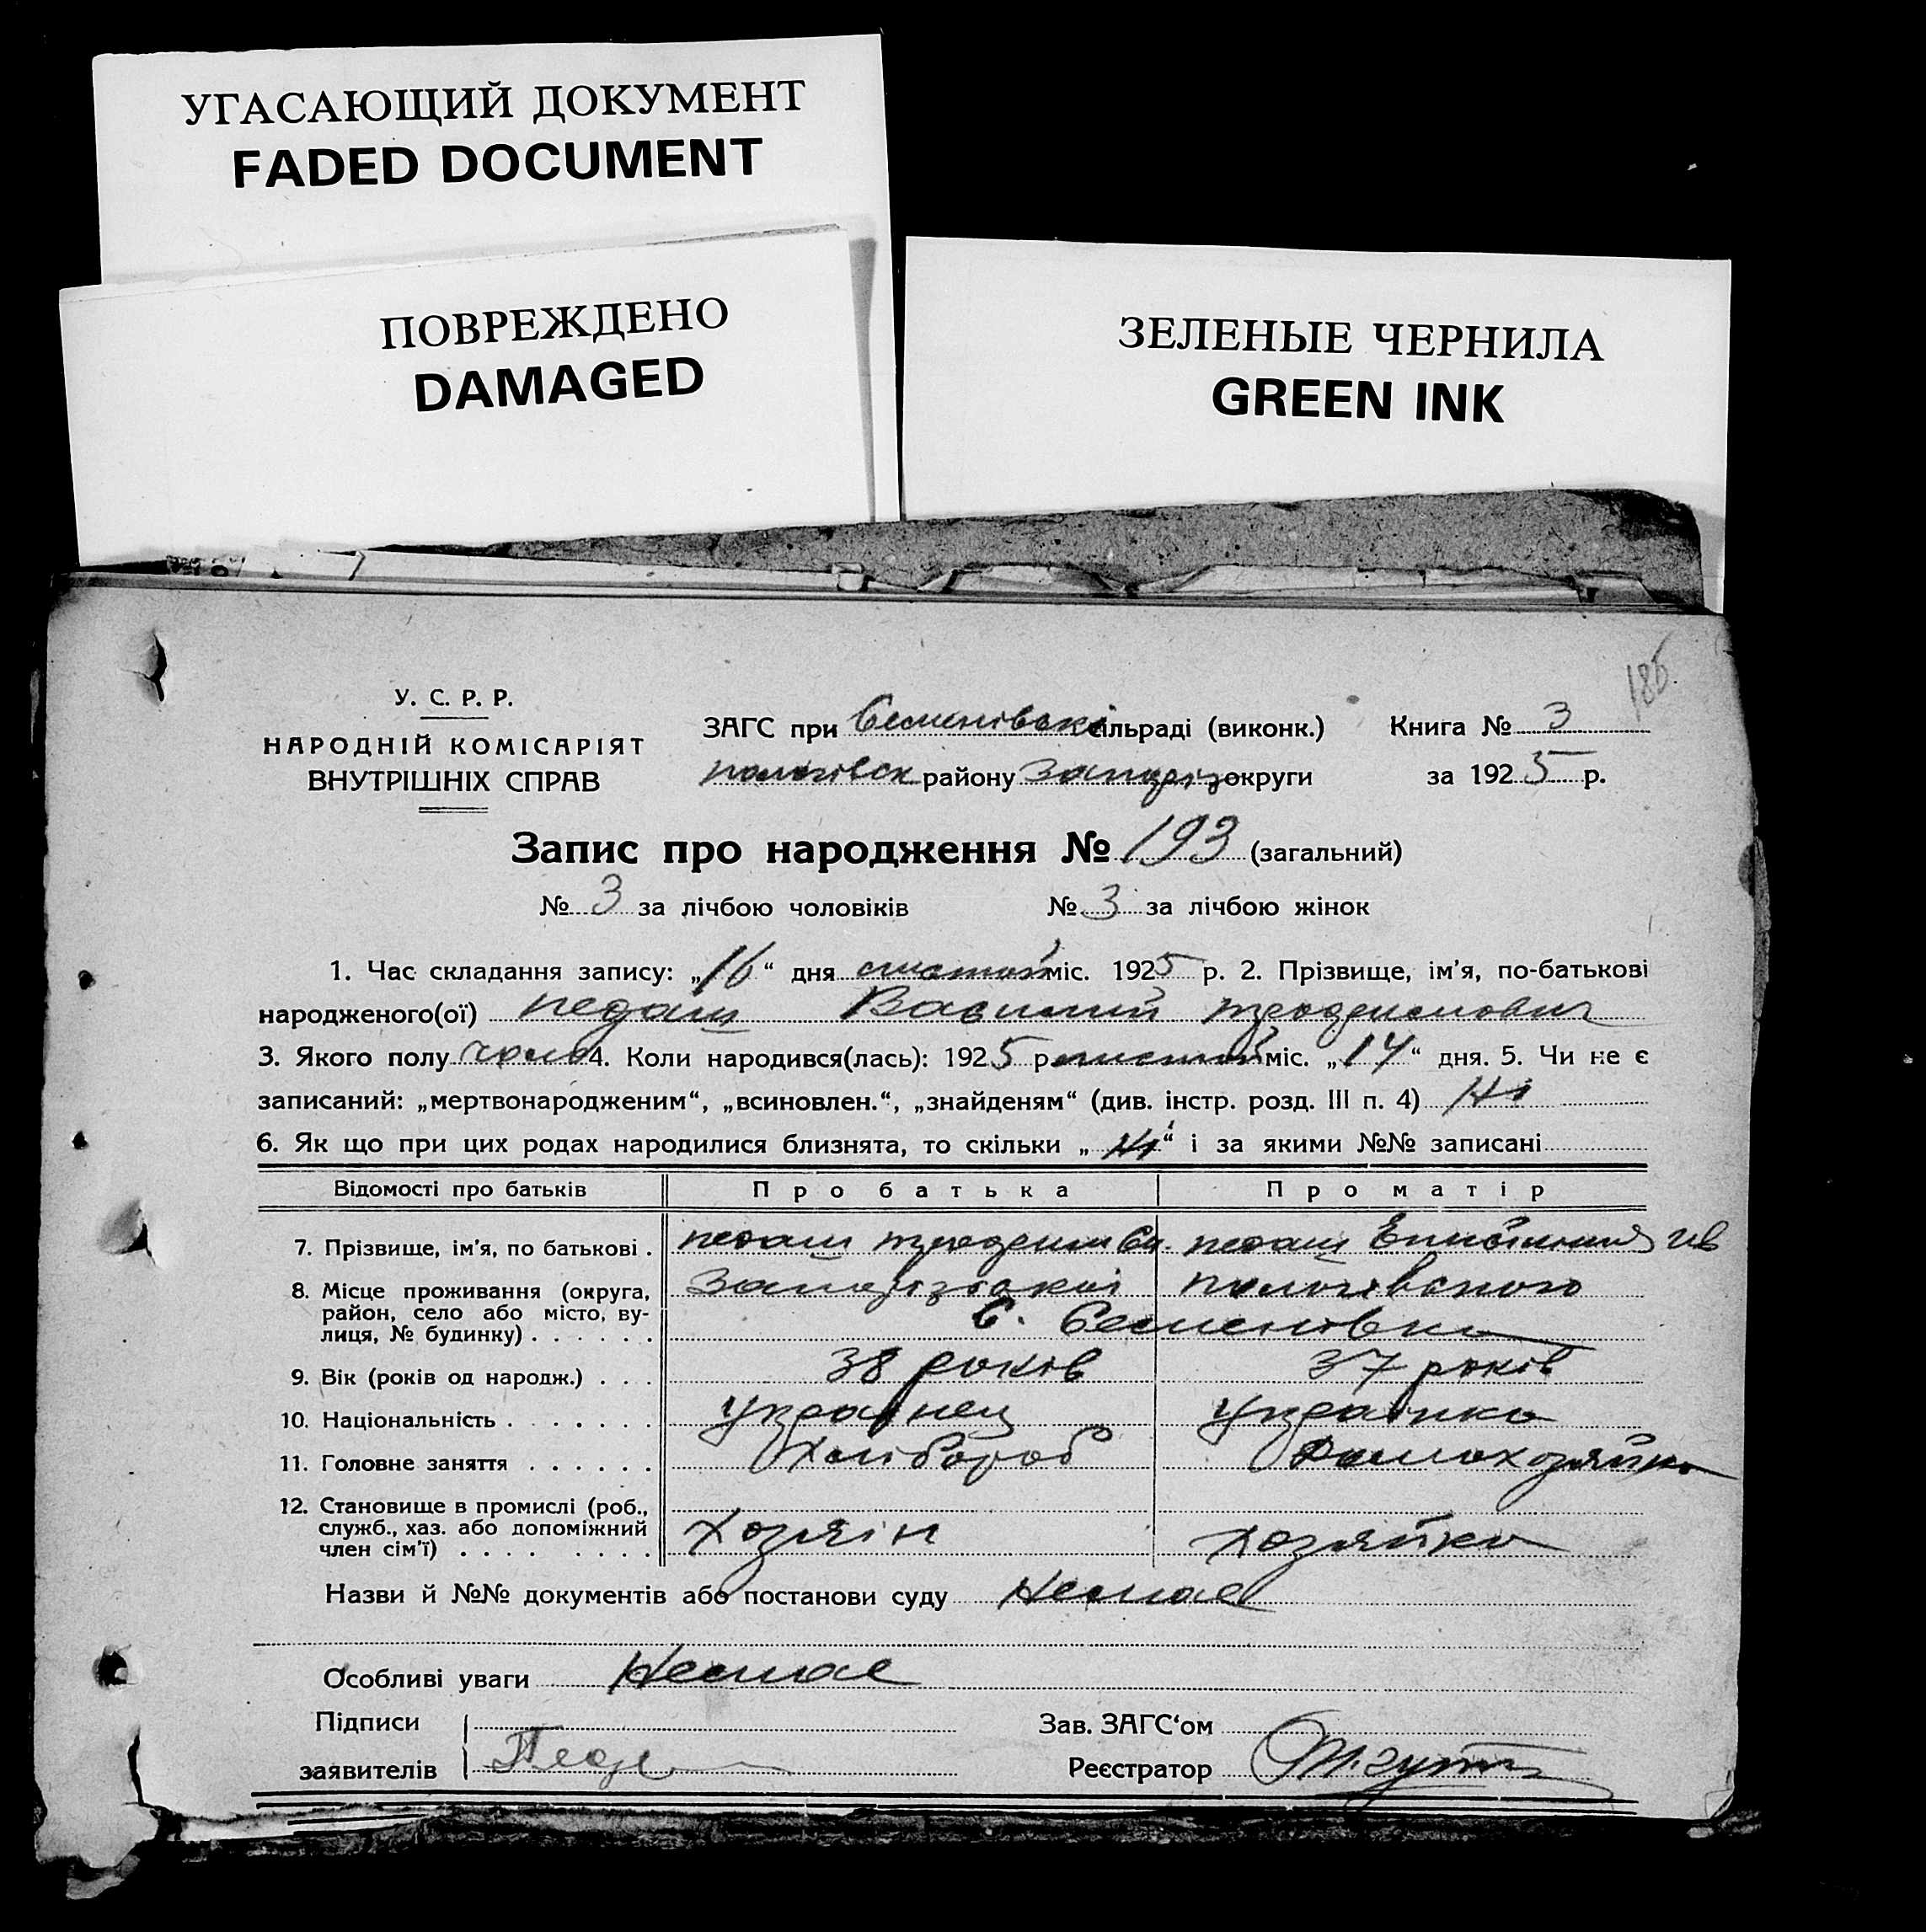 УГАСАЮЩИЙ ДОКУМЕНТ
FADED DOCUMENT
ПОВРЕЖДЕНО
DAMAGED
ЗЕЛЕНЫЕ ЧЕРНИЛА
GREEN INK
185.
У. С. Р. Р.
НАРОДНІЙ КОМІСАРІЯТ
ВНУТРІШНІХ СПРАВ
ЗАГС при Семенівські сільраді (виконк.) Книга № 3
пологівск району Запоріз округи за 1925 р.
Запис про народження № 193 (загальний)
№ 3 за лічбою чоловіків № 3 за лічбою жінок
1. Час складання запису: „16“ дня міс. 1925 р. 2. Прізвище, ім'я, по-батькові
народженого(ої) педаш Василий
3. Якого полу чоло 4. Коли народився(лась): 1925 р міс. „14“ дня. 5. Чи не є
записаний: „мертвонародженим“, „всиновлен.“, „знайденям“ (див. інстр. розд. III п. 4) Ні
6. Як що при цих родах народилися близнята, то скільки „Ні“ і за якими №№ записані
Відомості про батьків Про батька Про матір
7. Прізвище, ім'я, по батькові . педаш педаш
8. Місце проживання (округа, Запорізської пологівского
район, село або місто, ву- с. Семенівка
лиця, № будинку) . . . . . .
9. Вік (років од народж.) . . . 38 років 37 років
10. Національність . . . . . . . Українец Українка
11. Головне заняття . . . . . . Хлібороб Домохозяйка
12. Становище в промислі (роб.,
служб., хаз. або допоміжний Хозяін хозяйка
член сім'ї) . . . . . . . .
Назви й №№ документів або постанови суду Немає
Особливі уваги Немає
Підписи Зав. ЗАГС‘ом
заявителів Реєстратор